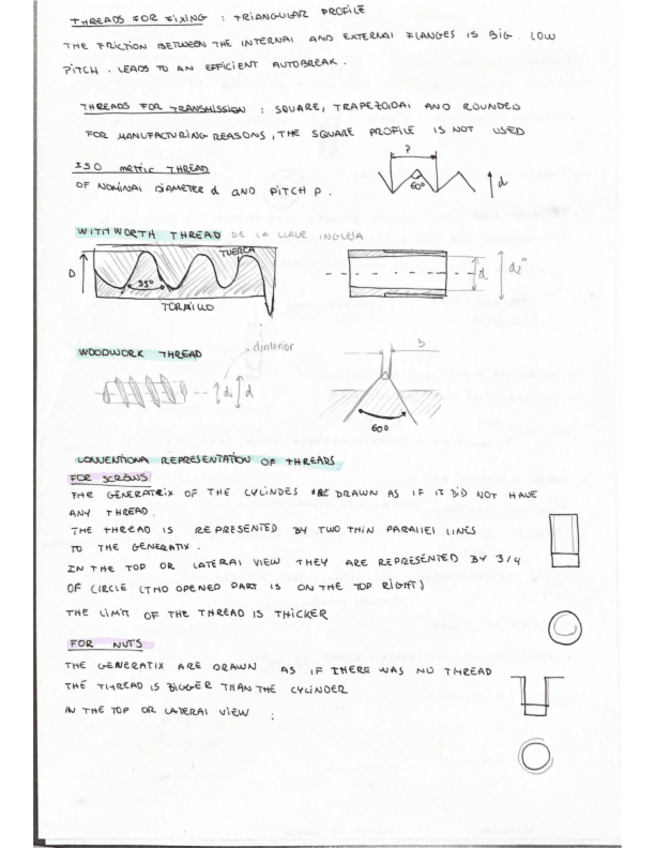 THREADS FOR FIXING : TRIANGULAR PROFILE
THE FRICTION BETWEEN THE INTERNAL AND EXTERNAL FLANGES IS BIG. LOW
PITCH. LEADS TO AN EFFICIENT AUTOBREAK.
THREADS FOR TRANSMISSION : SQUARE, TRAPEZOIDAL AND ROUNDED
FOR MANUFACTURING REASONS, THE SQUARE PROFILE IS NOT USED
ISO metric THREAD
OF NOMINAL DIAMETER d AND PITCH P.
P
60º
d
WITHWORTH THREAD DE LA LLAVE INGLESA
TUERCA
D
55º
TORNILLO
d
d2"
WOODWORK THREAD
dinterior
di
d
b
60º
CONVENTIONA REPRESENTATION OF THREADS
FOR SCREWS
THE GENERATRIX OF THE CYLINDES ARE DRAWN AS IF IT DID NOT HAVE
ANY THREAD.
THE THREAD IS REPRESENTED BY TWO THIN PARALLEL LINES
TO THE GENERATIX.
IN THE TOP OR LATERAL VIEW THEY ARE REPRESENTED BY 3/4
OF CIRCLE (THO OPENED PART IS ON THE TOP RIGHT)
THE LIMIT OF THE THREAD IS THICKER
FOR NUTS
THE GENERATIX ARE DRAWN AS IF THERE WAS NO THREAD
THE THREAD IS BIGGER THAN THE CYLINDER
IN THE TOP OR LATERAL VIEW :